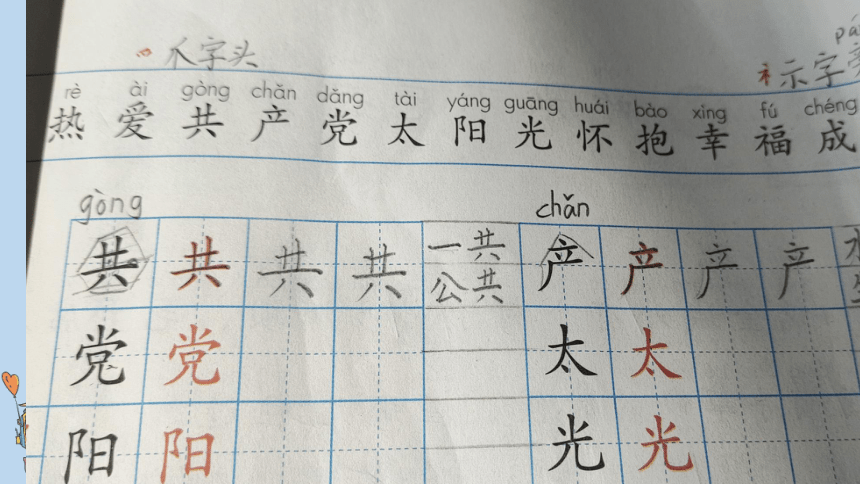 爫字头
pá
礻示字旁
rè ài gòng chǎn dǎng tài yáng guāng huái bào xìng fú chéng
热 爱 共 产 党 太 阳 光 怀 抱 幸 福 成
gòng chǎn
共 共 共 共 一共 产 产 产 产
公共
党 党 太 太
阳 阳 光 光